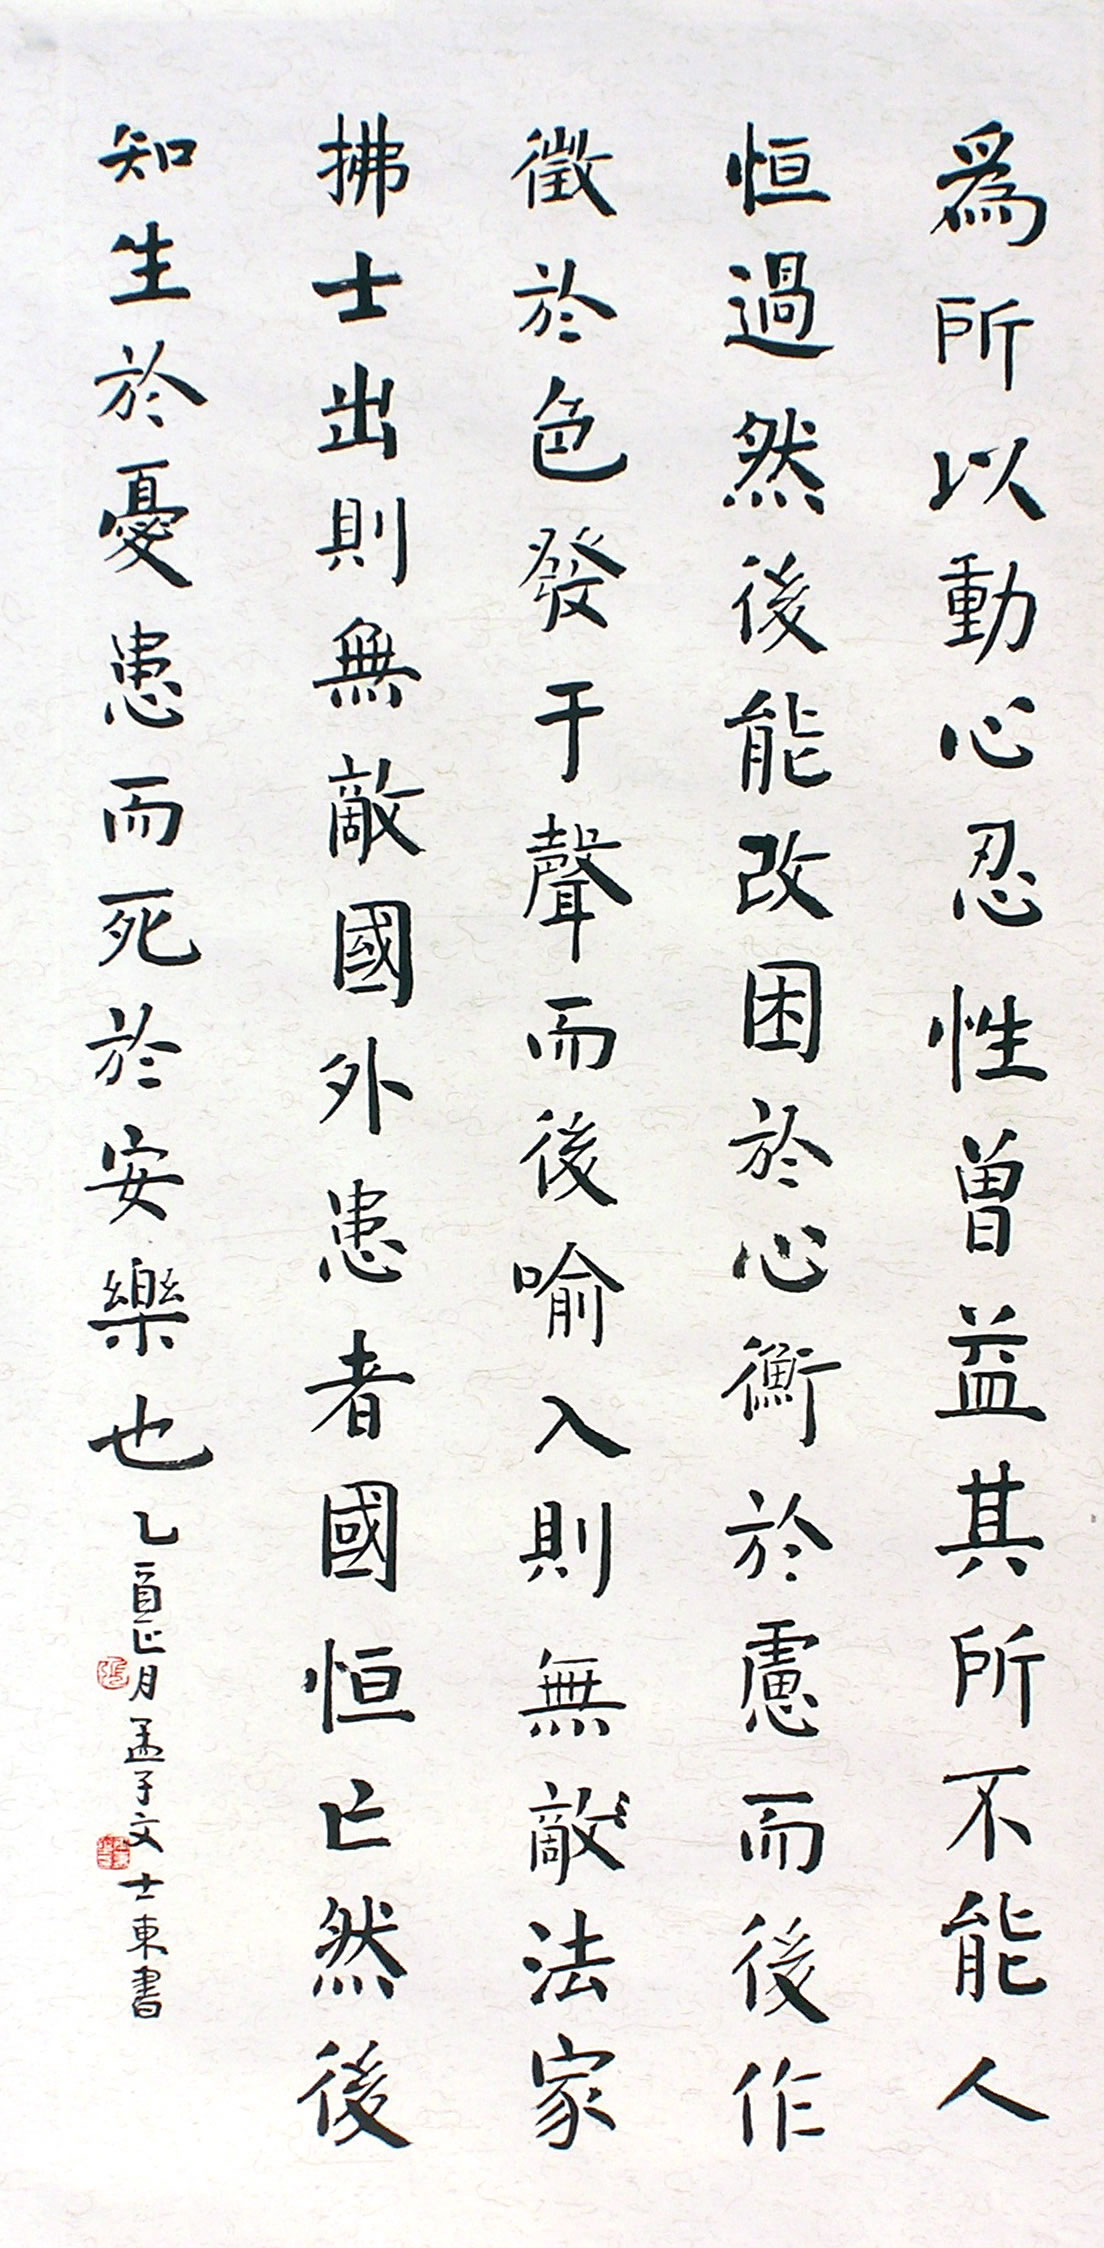 爲所以動心忍性曽益其所不能人
恒過然後能改困於心衡於慮而後作
徵於色發于聲而後喻入則無敵法家
拂士出則無敵國外患者國恒亡然後
知生於憂患而死於安樂也
乙酉正月孟子文士東書